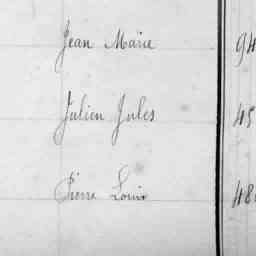 Jean Marie 94
Julien Jules 45
Pierre Louis 48